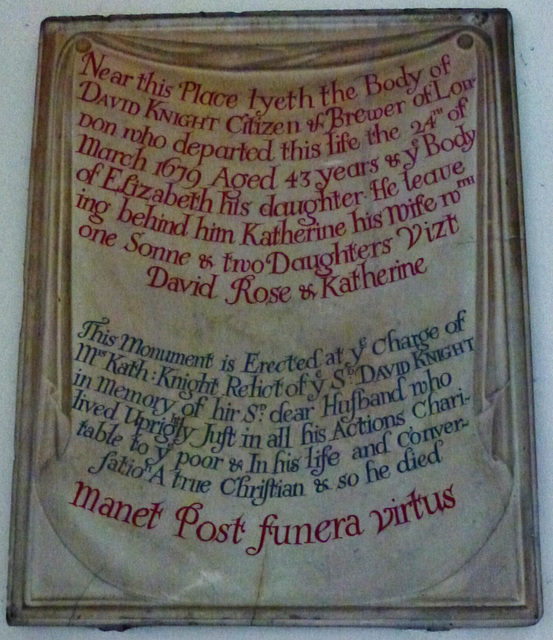 Near this Place lyeth the Body of
DAVID KNIGHT Citizen & Brewer of Lon
don who departed this life the 24th of
March 1679 Aged 43 years & yͤ Body
of Elizabeth his daughter. He leave
ing behind him Katherine his Wife wth
one Sonne & two Daughters Vizt
David Rose & Katherine
This Monument is Erected at yͤ Charge of
Mrs Kath: Knight Relict of yͤ Sd DAVID KNIGHT
in memory of hir Sd dear Huſband who
lived Uprigtly Juſt in all his Actions Chari-
table to yͤ poor & In his life and Conver-
ſatiō A true Chriſtian & so he died
Manet Post funera virtus